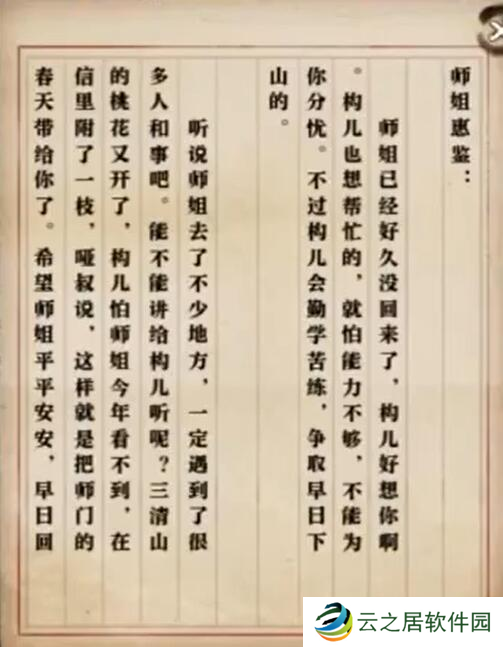 师姐惠鉴：
师姐已经好久没回来了，构儿好想你啊
。构儿也想帮忙的，就怕能力不够，不能为
你分忧。不过构儿会勤学苦练，争取早日下
山的。
听说师姐去了不少地方，一定遇到了很
多人和事吧。能不能讲给构儿听呢？三清山
的桃花又开了，构儿怕师姐今年看不到，在
信里附了一枝，哑叔说，这样就是把师门的
春天带给你了。希望师姐平平安安，早日回
云之居软件园